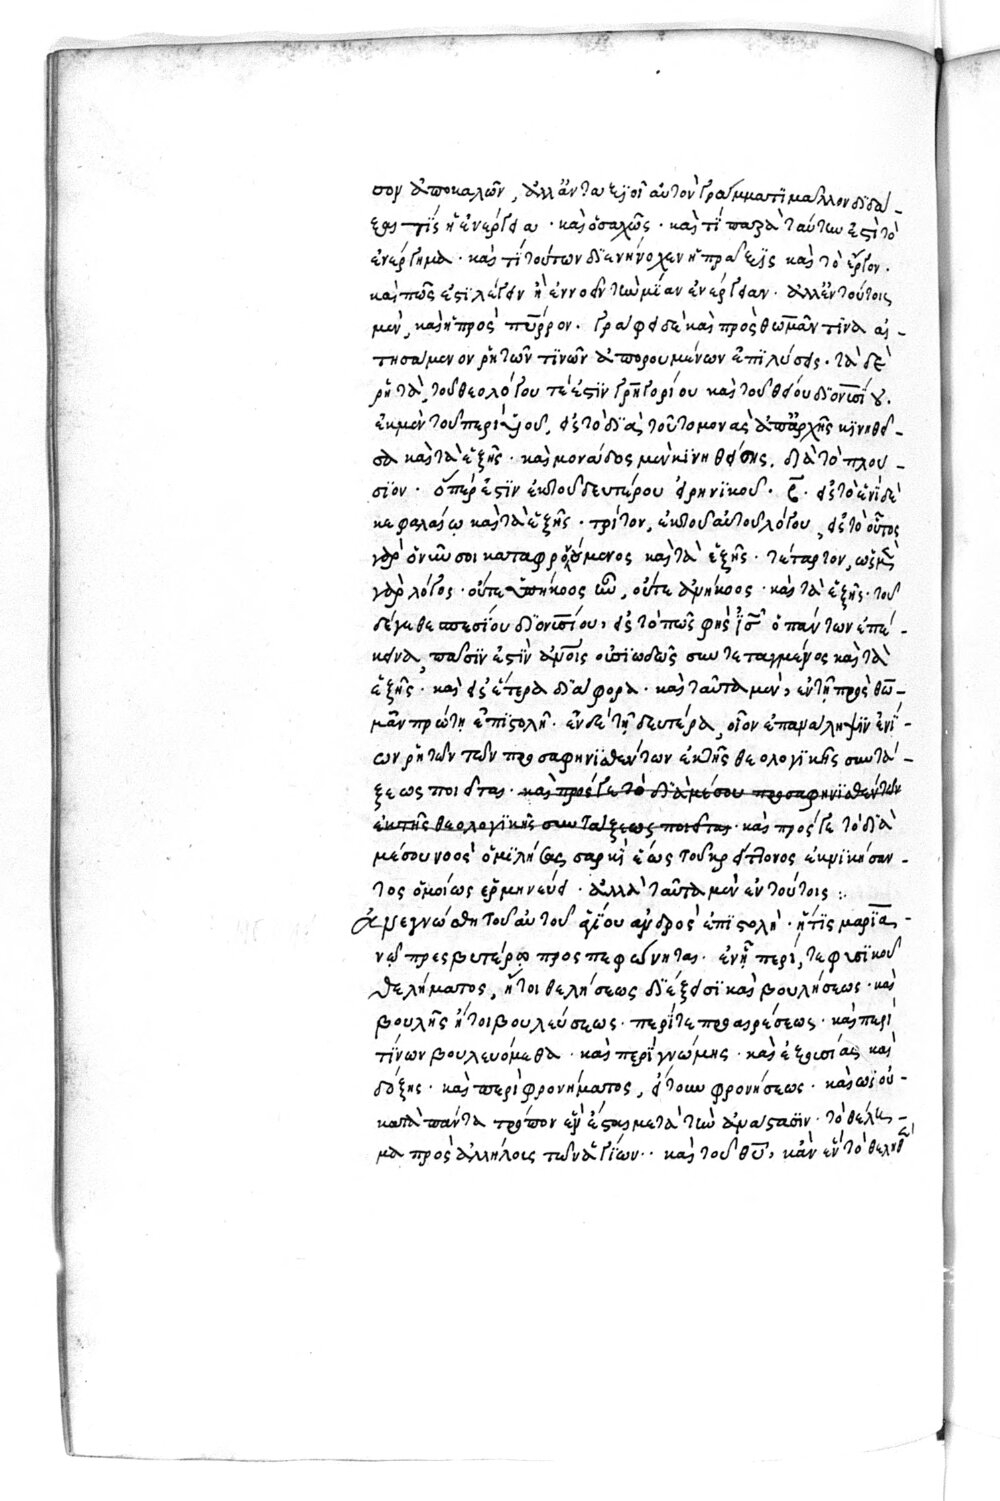 σον ἀποκαλῶν, ἀλλ' ἀνταξιοῖ αὐτὸν γράμματι μᾶλλον διδά-
ξαι τίς ἡ ἐνέργεια· καὶ ὁσαχῶς· καὶ τί παρὰ ταύτην ἐστὶ τὸ
ἐνέργημα· καὶ τί τούτων διενήνοχεν ἡ πρᾶξις καὶ τὸ ἔργον.
καὶ πῶς ἐστι λέγειν ἢ ἐννοεῖν τὴν μίαν ἐνέργειαν. ἀλλ' ἐν τούτοις
μὲν, καὶ ἡ πρὸς πύρρον. γράφει δὲ καὶ πρὸς θωμᾶν τινὰ αἰ-
τησάμενον ῥητῶν τινῶν ἀπορουμένων ἐπιλύσεις. τὰ δὲ
ῥητὰ, τοῦ θεολόγου τέ ἐστιν γρηγορίου καὶ τοῦ θείου διονυσίου.
ἐκ μὲν τοῦ περὶ υἱοῦ, εἰς τὸ διὰ τοῦτο μονὰς ἀπ' ἀρχῆς κινηθεῖ-
σα καὶ τὰ ἑξῆς· καὶ μονάδος μὲν κινηθείσης, διὰ τὸ πλού-
σιον· ὅπέρ ἐστιν ἐκ τοῦ δευτέρου εἰρηνικοῦ. ϛ. εἰς τὸ ἑνὶ δὲ
κεφαλαίῳ καὶ τὰ ἑξῆς· τρίτον, ἐκ τοῦ αὐτοῦ λόγου, εἰς τὸ οὗτος
γὰρ ὁ νῦν σοι καταφρονούμενος καὶ τὰ ἑξῆς· τέταρτον, ὡς
γὰρ λόγος· οὔτε ὑπήκοος ἦν, οὔτε ἀνήκοος· καὶ τὰ ἑξῆς· τοῦ
δέ γε θεσπεσίου διονυσίου, εἰς τὸ πῶς φὴς ισ ὁ πάντων ἐπέ-
κεινα, πᾶσιν ἐστὶν ἀνοις οὐσιωδῶς συντεταγμένος καὶ τὰ
ἑξῆς· καὶ εἰς ἕτερα διάφορα. καὶ ταῦτα μὲν, ἐν τῇ πρὸς θω-
μᾶν πρώτῃ ἐπιστολῇ. ἐν δὲ τῇ δευτέρᾳ, οἷον ἐπανάληψιν ἐνί-
ων ῥητῶν τῶν προσαφηνισθέντων ἐκ τῆς θεολογικῆς συντά-
ξεως ποιεῖται. καὶ πρός γε τὸ διὰ μέσου προσαφηνισθέντων
ἐκ τῆς θεολογικῆς συντάξεως ποιεῖται. καὶ πρός γε τὸ διὰ
μέσου νοὸς ὁμιλήσας σαρκὶ ἕως τοῦ κρείττονος ἐκνικήσαν-
τος ὁμοίως ἑρμηνεύει. ἀλλὰ ταῦτα μὲν ἐν τούτοις :.
Ἀνεγνώσθη τοῦ αὐτοῦ ἁγίου ἀνδρὸς ἐπιστολὴ. ἥτις μαρια-
νῷ πρεσβυτέρῳ προσπεφώνηται. ἐν ᾗ περί, τε φυσικοῦ
θελήματος, ἤτοι θελήσεως διέξεισι καὶ βουλήσεως. καὶ
βουλῆς ἤτοι βουλεύσεως. περί τε προαιρέσεως. καὶ περὶ
τίνων βουλευόμεθα. καὶ περὶ γνώμης. καὶ ἐξουσίας καὶ
δόξης. καὶ περὶ φρονήματος, εἴτουν φρονήσεως. καὶ ὡς οὐ
κατὰ πάντα τρόπον ἓν ἔσται μετὰ τὴν ἀνάστασιν. τὸ θέλη-
μα πρὸς ἀλλήλοις τῶν ἁγίων. καὶ τοῦ θυ, κἂν ἓν τὸ θεληθὲν